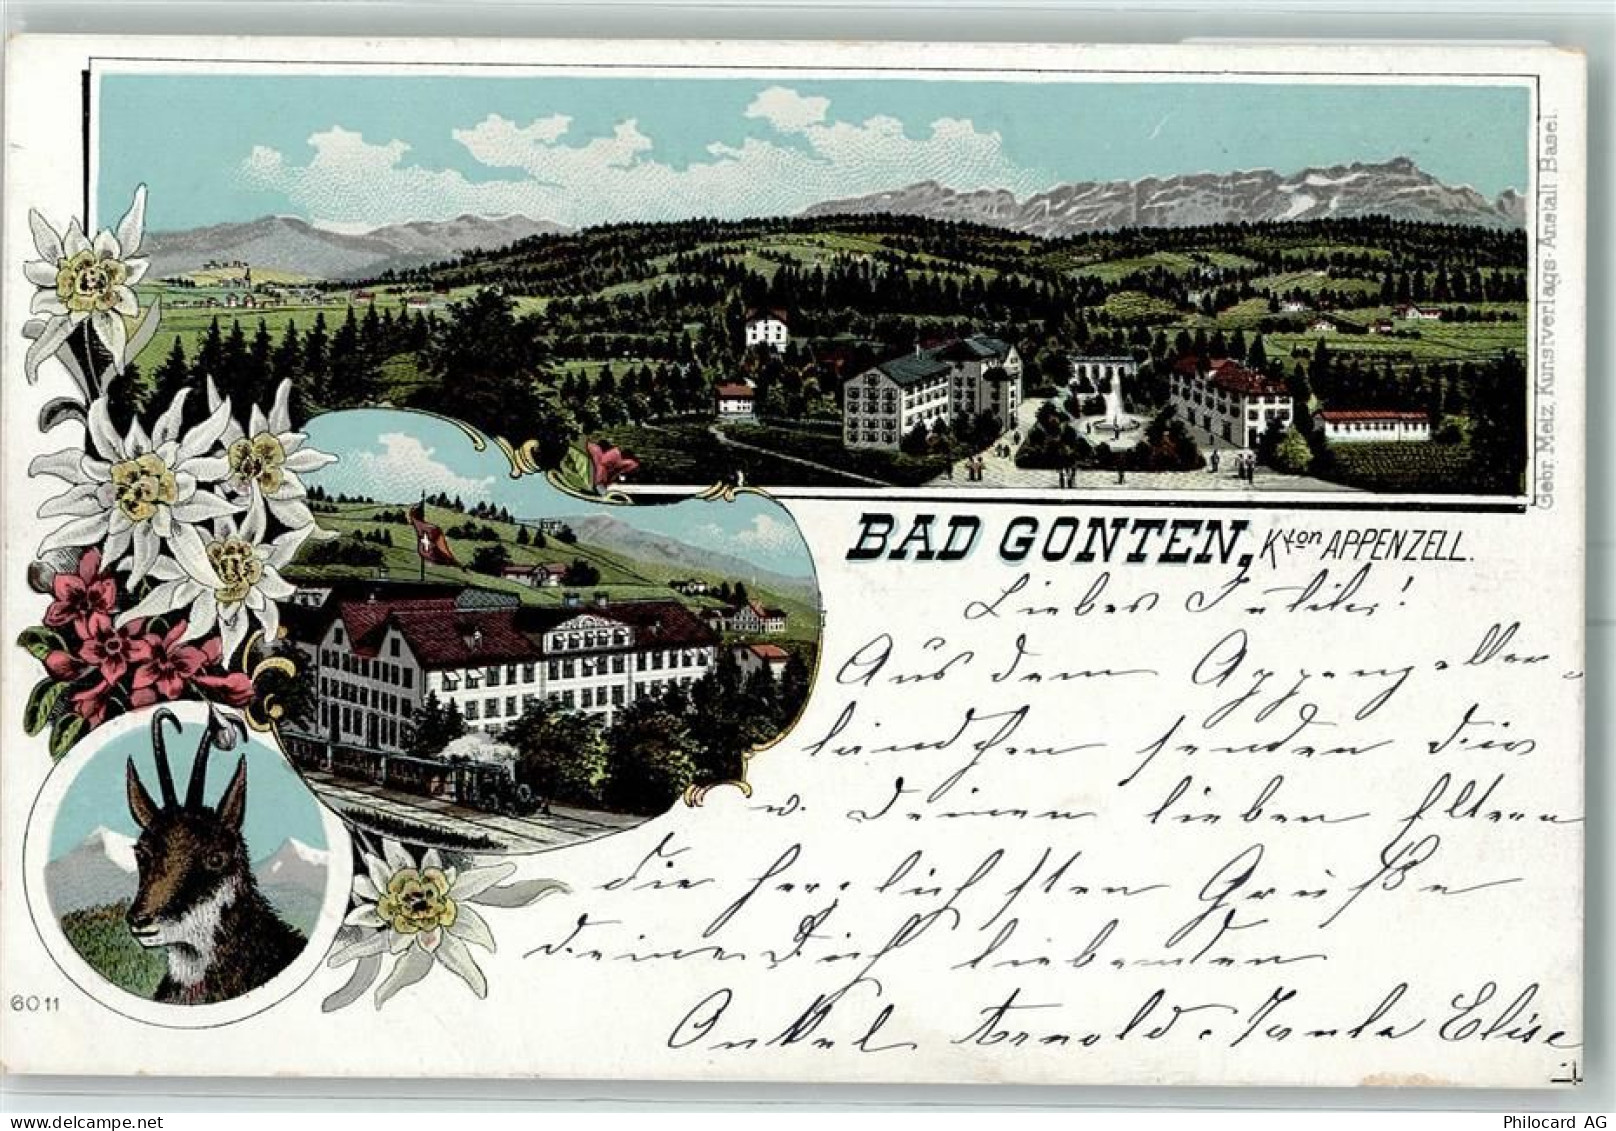 BAD GONTEN, Kton APPENZELL.
Gebr. Metz, Kunstverlags-Anstalt Basel.
Liebes
Aus dem Appenzeller-
ländchen senden dir
u. deinen lieben Eltern
die herzlichsten Grüße
deine Dich liebenden
Onkel Arnold u. Tante Elise
6011
Philocard AG